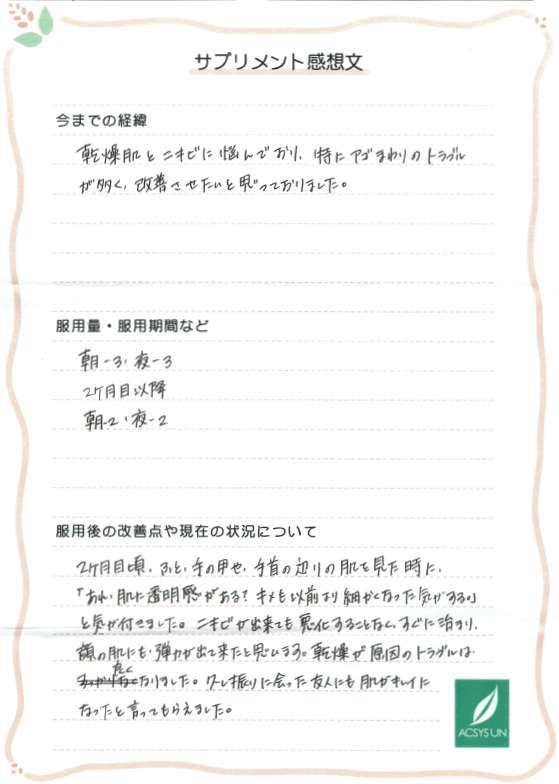 サプリメント感想文
今までの経緯
乾燥肌とニキビに悩んでおり、特にアゴまわりのトラブル
が多く、改善させたいと思っておりました。
服用量・服用期間など
朝-3、夜-3
2ケ月目以降
朝-2、夜-2
服用後の改善点や現在の状況について
2ケ月目頃、ふと、手の甲や、手首の辺りの肌を見た時に、
「あれ、肌に透明感がある?キメも以前より細かくなった気がする。」
と気が付きました。ニキビが出来ても悪化することなく、すぐに治まり、
顔の肌にも、弾力が出て来たと思います。乾燥が原因のトラブルは
なくなりました。久し振りに会った友人にも肌がキレイに
なったと言ってもらえました。
ACSYSUN